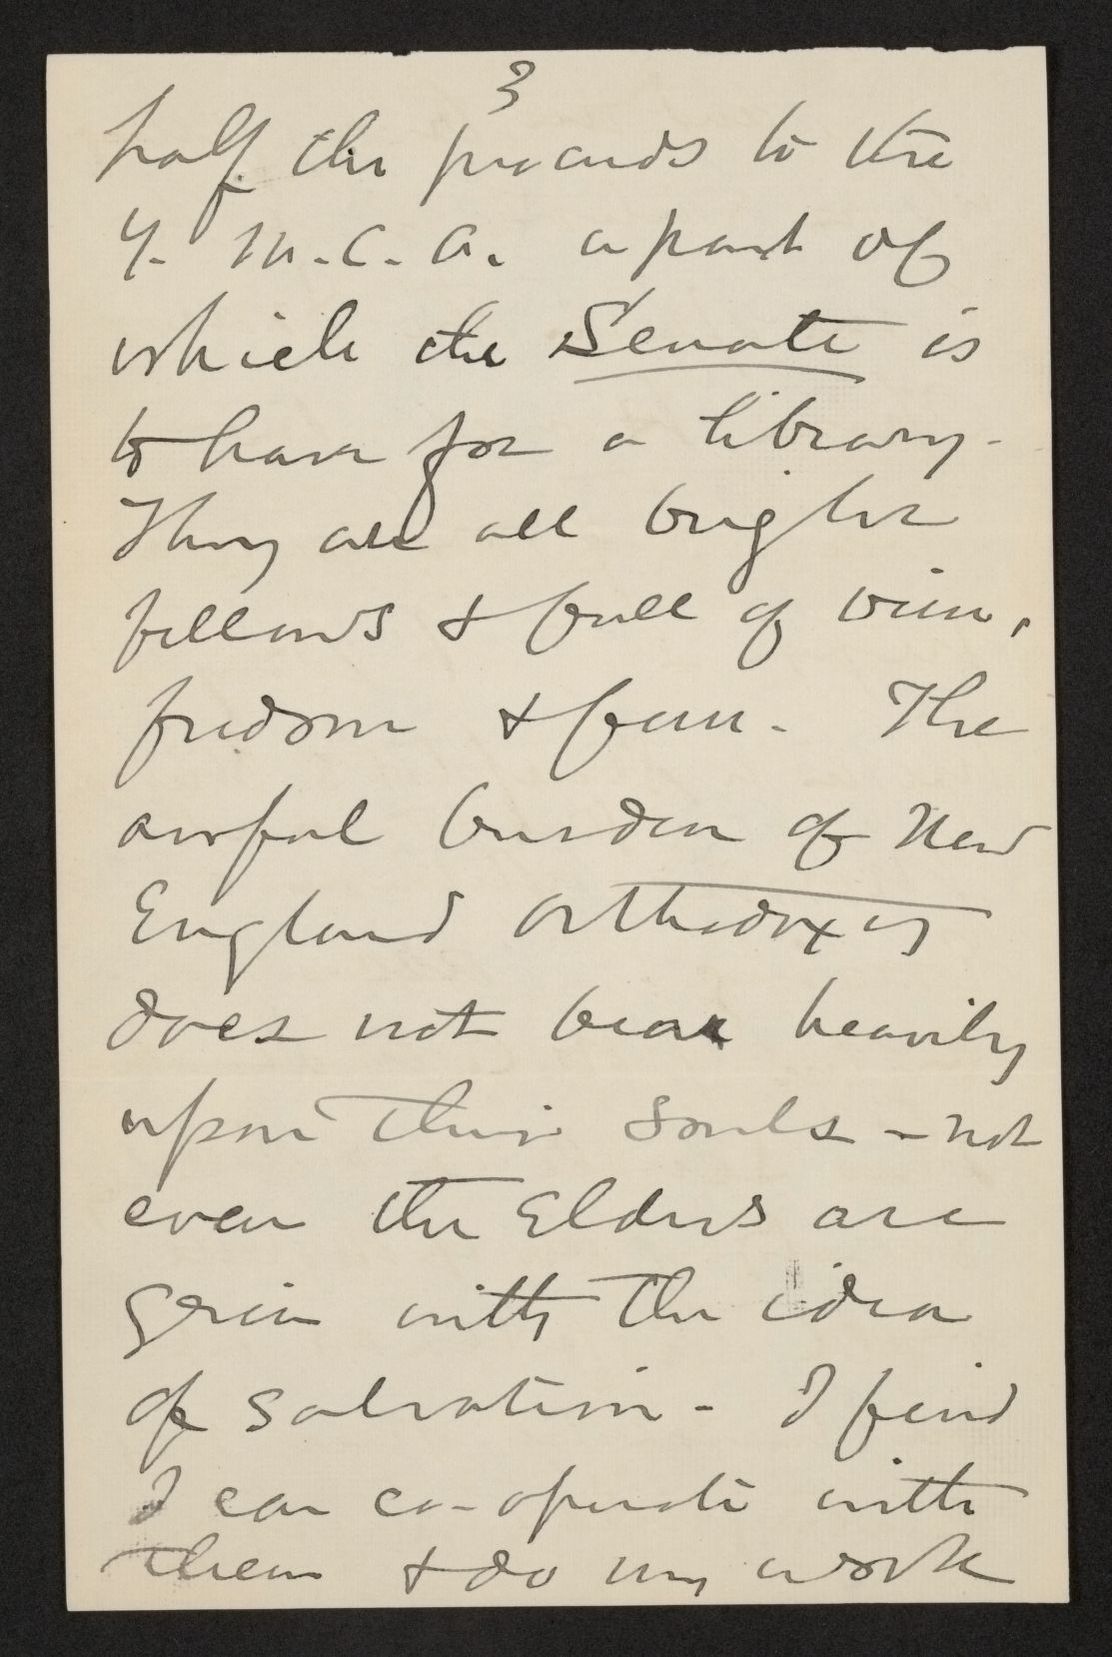 3
half the proceeds to the
Y. M. C. A. a part of
which the Senate is
to have for a library.
They are all bright
fellows & full of vim,
freedom & fun. The
awful burden of New
England Orthodoxy
does not bear heavily
upon their souls - not
even the Elders are
grim with the idea
of salvation - I find
I can co-operate with
them & do my work